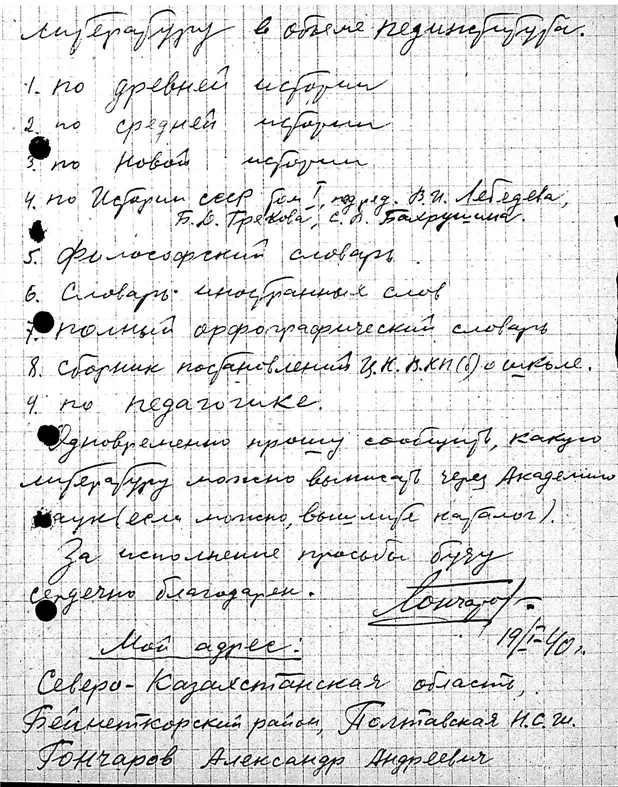 литературу в объеме пединститута.
1. по древней истории
2. по средней истории
3. по Новой истории
4. по Истории СССР том I, под ред. В.И. Лебедева,
Б.Д. Грекова, С.В. Бахрушина.
5. Философский словарь.
6. Словарь иностранных слов
7. полный орфографический словарь
8. сборник постановлений Ц.К. В.КП(б) о школе.
9. по педагогике.
Одновременно прошу сообщить, какую
литературу можно выписать через Академию
наук (если можно, вышлите каталог).
За исполнение просьбы буду
сердечно благодарен. Гончаров
19/I-40 г.
Мой адрес:
Северо-Казахстанская область,
Бейнеткорский район, Полтавская Н.С.Ш.
Гончаров Александр Андреевич